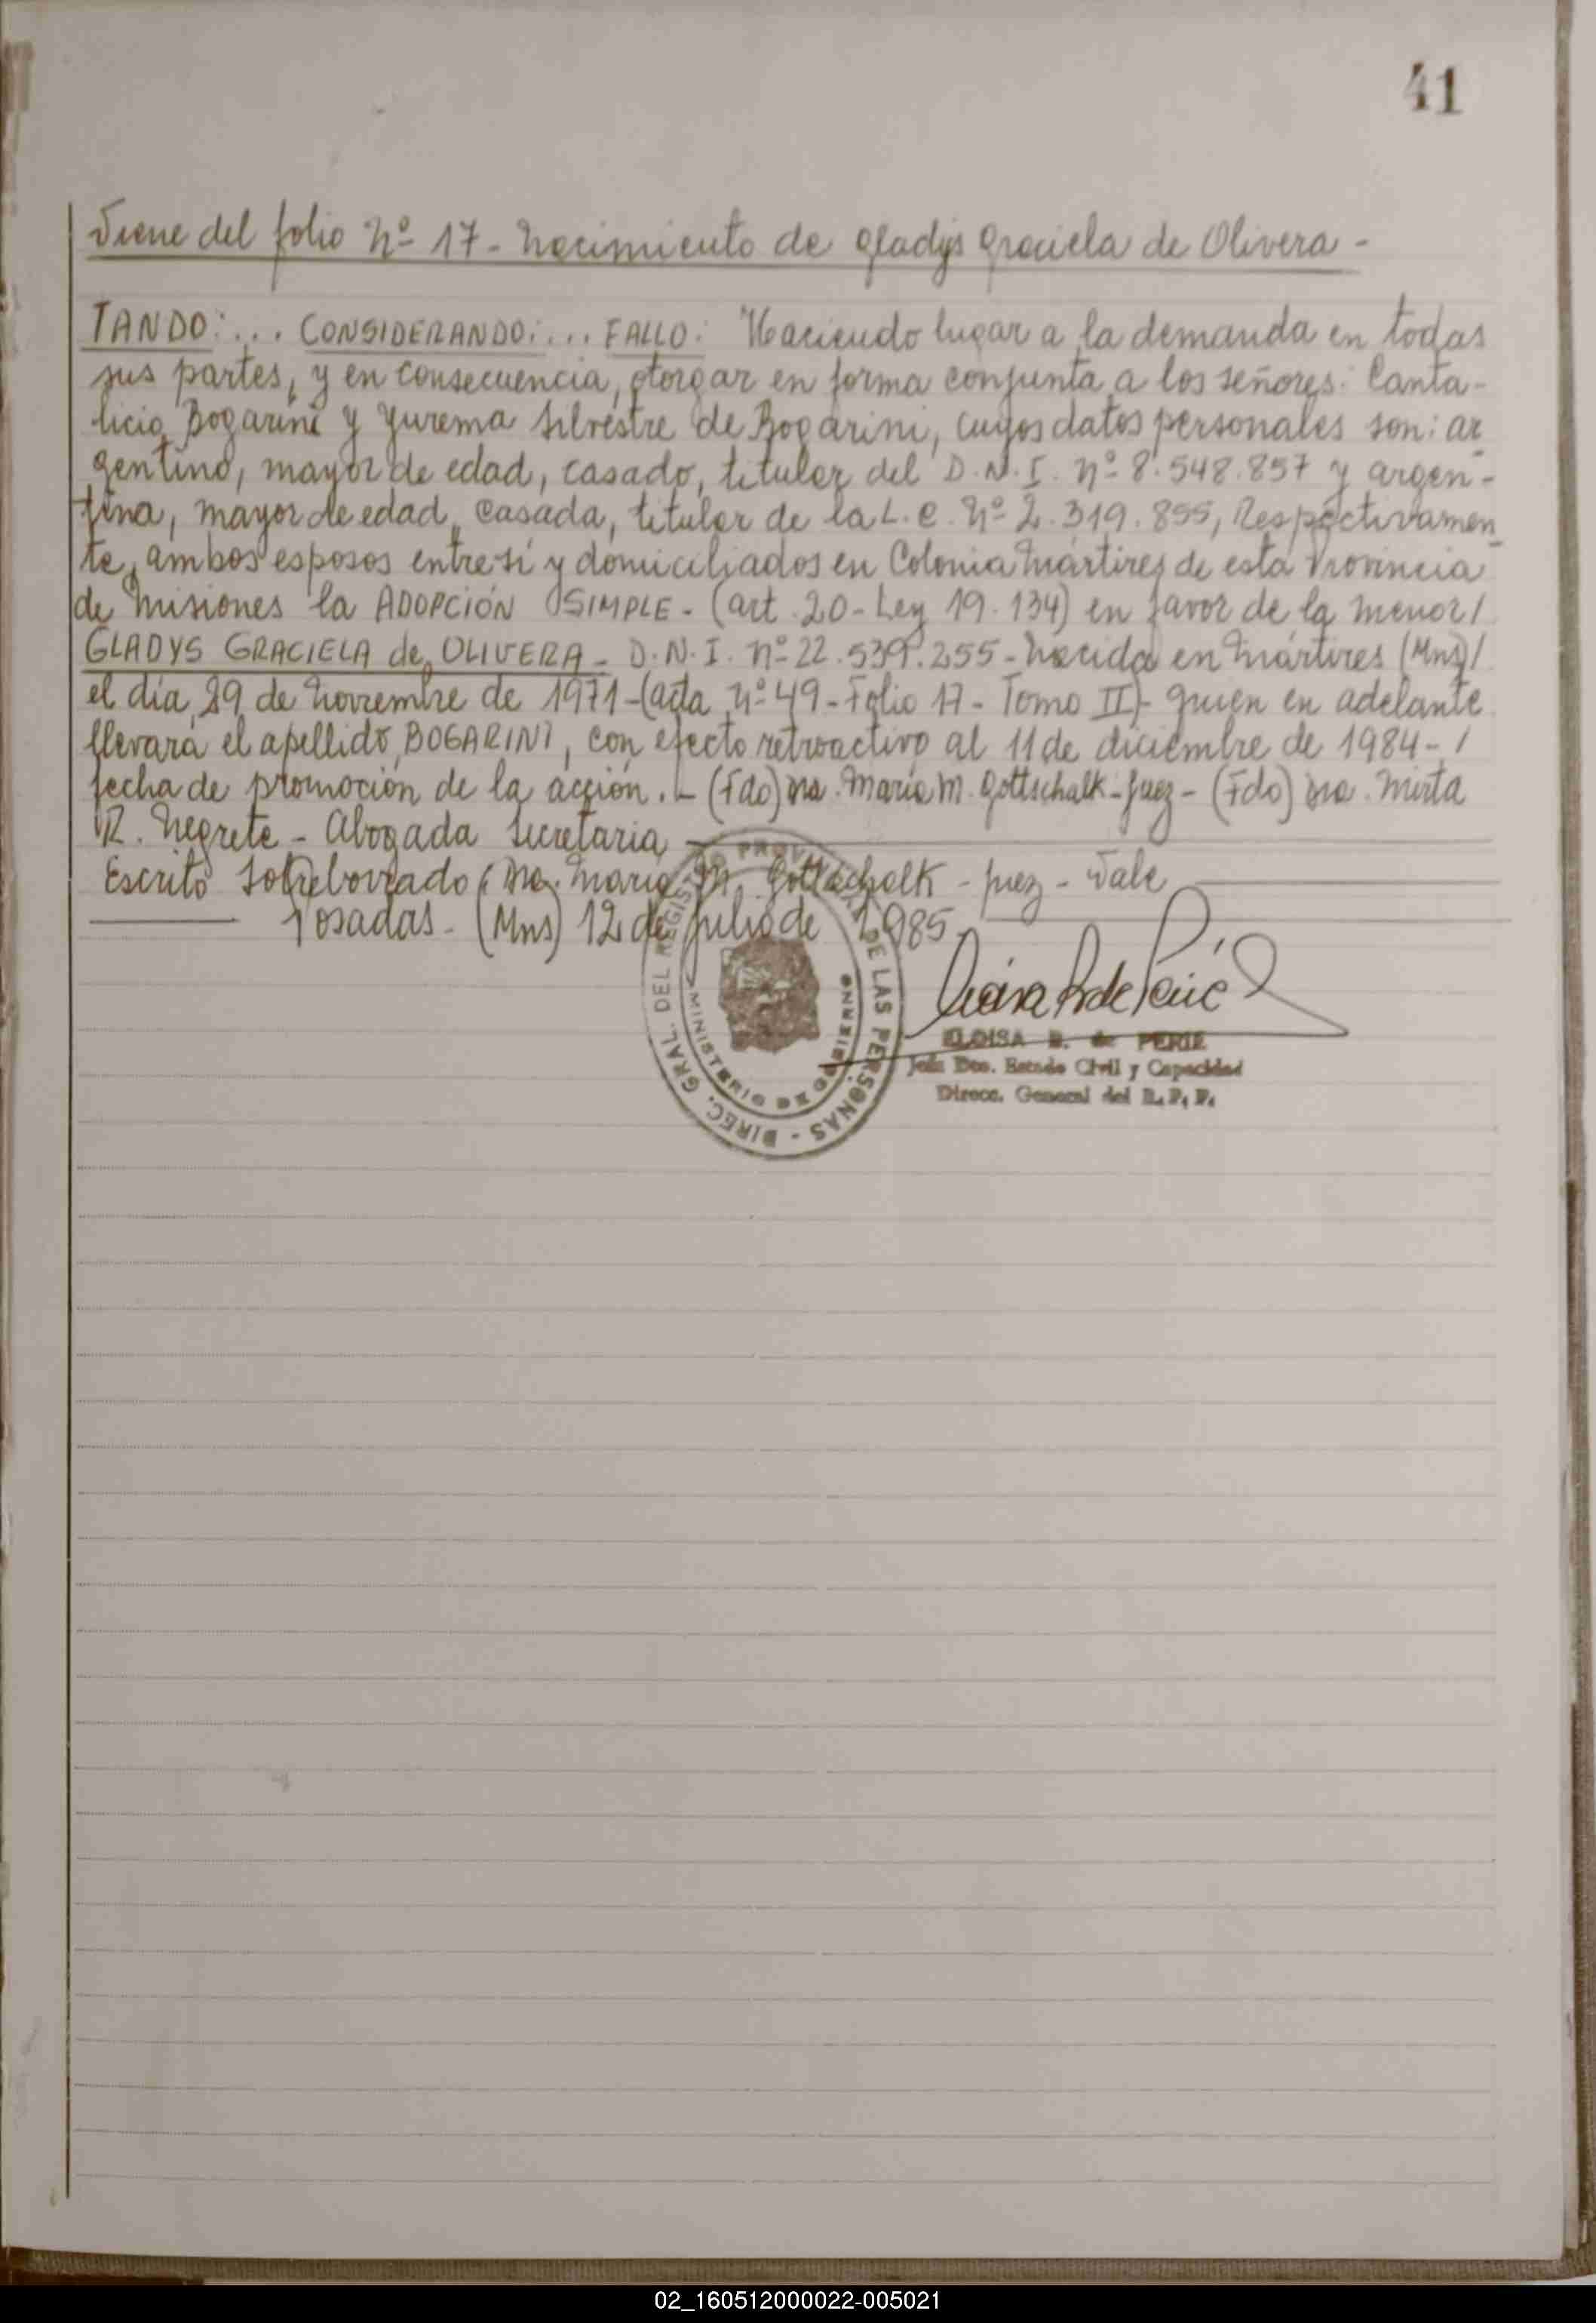 41
Viene del folio Nº 17 - Nacimiento de Gladys Graciela de Olivera -
TANDO: ... CONSIDERANDO: ... FALLO: "Haciendo lugar a la demanda en todas
sus partes, y en consecuencia, otorgar en forma conjunta a los señores: Canta-
licio Bogarini y Yurema Silvestre de Bogarini, cuyos datos personales son: ar
gentino, mayor de edad, casado, titular del D.N.I. Nº 8.548.857 y argen-
tina, mayor de edad, casada, titular de la L.C. Nº 2.319.855, Respectivamen
te, ambos esposos entre sí y domiciliados en Colonia Mártires de esta Provincia
de Misiones la ADOPCIÓN SIMPLE - (art. 20 - Ley 19.134) en favor de la menor /
GLADYS GRACIELA de OLIVERA - D.N.I. Nº 22.539.255 - Nacida en Mártires (Mns) /
el día 29 de Noviembre de 1971 - (acta Nº 49 - Folio 17 - Tomo II) - quien en adelante
llevará el apellido BOGARINI, con efecto retroactivo al 11 de diciembre de 1984 - /
fecha de promoción de la acción. - (Fdo) Dra. María M. Gottschalk - Juez - (Fdo) Dra. Mirta
R. Negrete - Abogada Secretaria
Escrito Sobreborrado: Dra. María M. Gottschalk - juez - Vale
Posadas - (Mns) 12 de Julio de 1985 -
DIREC. GRAL. DEL REGISTRO PROVINCIAL DE LAS PERSONAS -
MINISTERIO DE GOBIERNO
ELOISA B. de PERIE
Jefa Dto. Estado Civil y Capacidad
Direcc. General del R. P. P.
02_160512000022-005021